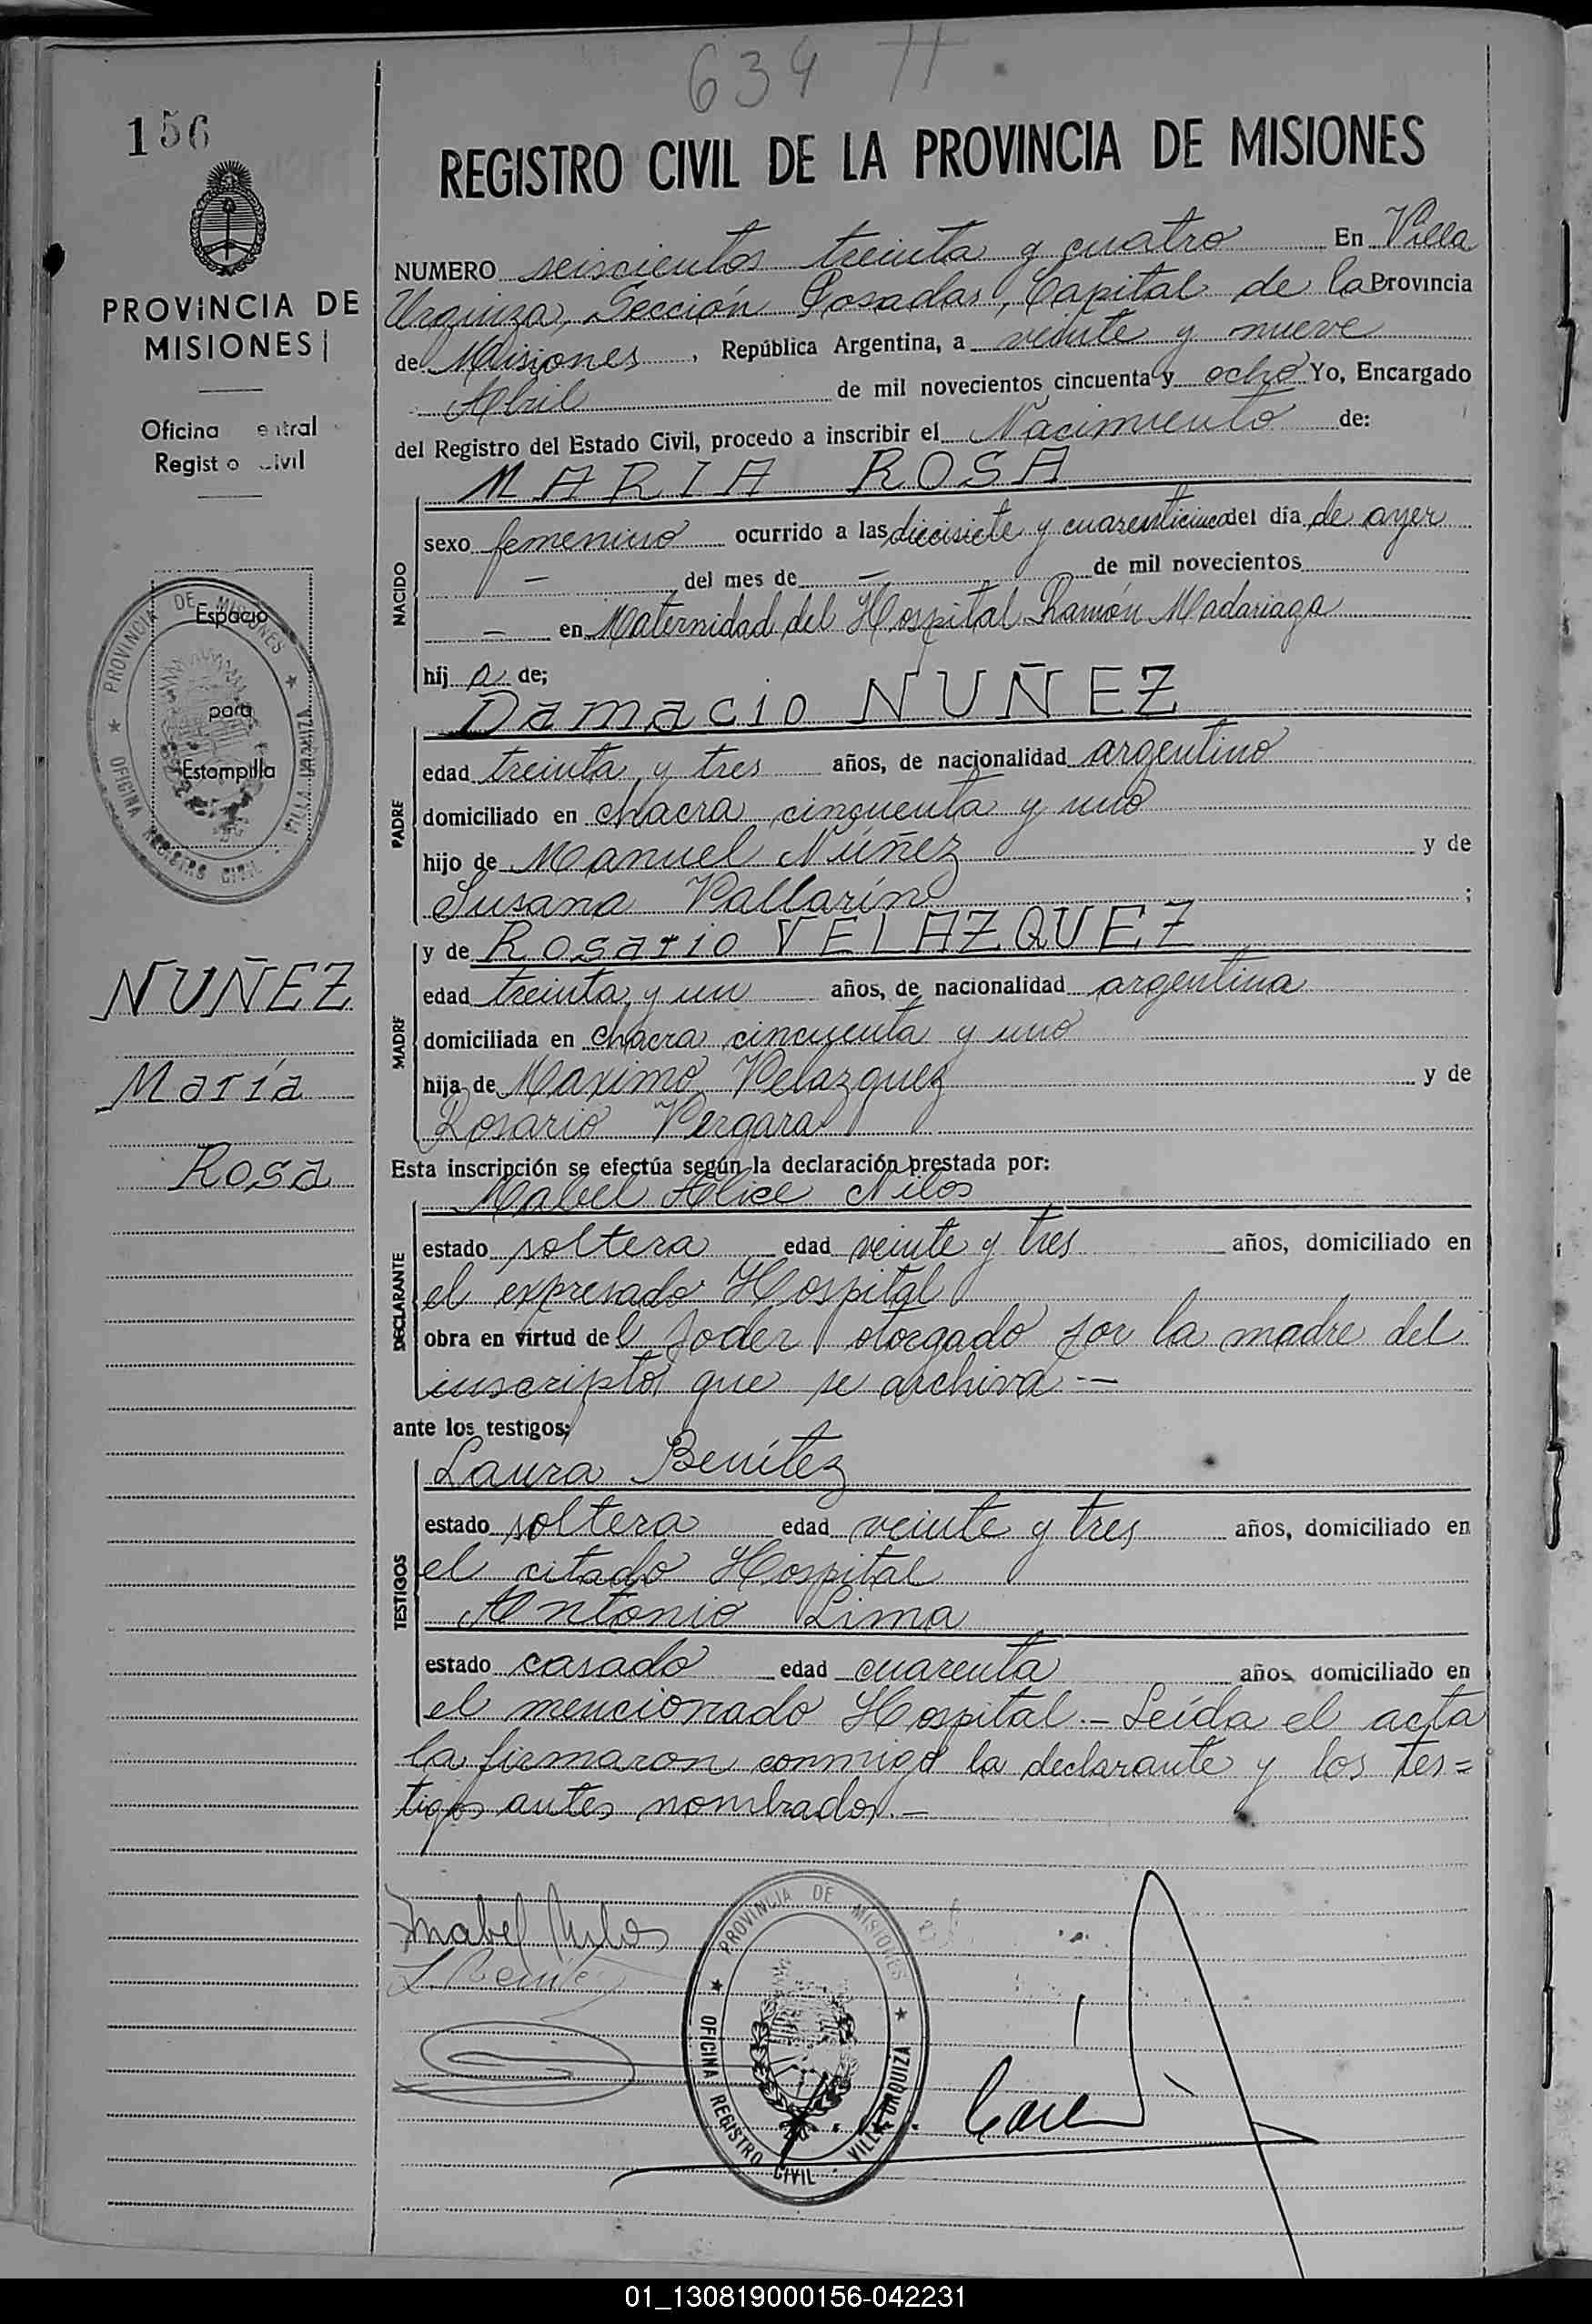 634 H
156
REGISTRO CIVIL DE LA PROVINCIA DE MISIONES
NUMERO seiscientos treinta y cuatro En Villa
Urquiza, Sección Posadas, Capital de la Provincia
de Misiones, República Argentina, a veinte y nueve
Abril de mil novecientos cincuenta y ocho Yo, Encargado
del Registro del Estado Civil, procedo a inscribir el Nacimiento de:
MARIA ROSA
NACIDO
sexo femenino ocurrido a las diecisiete y cuarenticinco del día de ayer
— del mes de — de mil novecientos
— en Maternidad del Hospital Ramón Madariaga
hij a de;
Damacio NUÑEZ
PADRE
edad treinta y tres años, de nacionalidad argentino
domiciliado en chacra cincuenta y uno
hijo de Manuel Núñez y de
Susana Vallarino ;
y de Rosario VELAZQUEZ
MADRE
edad treinta y un años, de nacionalidad argentina
domiciliada en chacra cincuenta y uno
hija de Maximo Velazquez y de
Rosario Vergara
Esta inscripción se efectúa según la declaración prestada por:
Mabel Alice Nilos
DECLARANTE
estado soltera edad veinte y tres años, domiciliado en
el expresado Hospital
obra en virtud del poder otorgado por la madre del
inscripto que se archiva —
ante los testigos;
Laura Benítez
TESTIGOS
estado soltera edad veinte y tres años, domiciliado en
el citado Hospital
Antonio Lima
estado casado edad cuarenta años domiciliado en
el mencionado Hospital.- Leída el acta
la firmaron conmigo la declarante y los tes=
tigos antes nombrados.-
Mabel Nilos
L. Benítez
PROVINCIA DE MISIONES
OFICINA REGISTRO CIVIL - VILLA URQUIZA
PROVINCIA DE
MISIONES
Oficina entral
Regist o ivil
PROVINCIA DE MISIONES
OFICINA REGISTRO CIVIL - VILLA URQUIZA
Espacio
para
Estampilla
NUÑEZ
María
Rosa
01_130819000156-042231